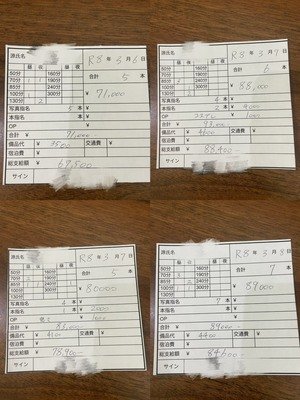 源氏名 R8年3月6日
昼 夜 昼 夜
50分 160分
70分 1 1 190分
85分 1 240分
100分 300分
130分 2
合計 5 本
¥ 71,000
写真指名 5 本
本指名 本 ¥
OP ¥
合計 ¥ 71,000
備品代 ¥ 3500 交通費 ¥
宿泊費 ¥
総支給額 ¥ 67,500
サイン
源氏名 R8年3月7日
昼 夜 昼 夜
50分 160分
70分 190分
85分 240分
100分 300分
130分
合計 6 本
¥ 88,000
写真指名 4 本
本指名 2 本 ¥
OP ¥
合計 ¥ 93,000
備品代 ¥ 4600 交通費 ¥
宿泊費 ¥
総支給額 ¥ 88,400
サイン
源氏名 R8年3月7日
昼 夜 昼 夜
50分 160分
70分 190分
85分 240分
100分 300分
130分
合計 5 本
¥ 80000
写真指名 4 本
本指名 1 本 ¥ 2000
OP ¥ 1000
合計 ¥ 83,000
備品代 ¥ 交通費 ¥
宿泊費 ¥
総支給額 ¥ 78,900
サイン
源氏名 R8年3月8日
昼 夜 昼 夜
50分 160分
70分 190分
85分 240分
100分 300分
130分
合計 7 本
¥ 89000
写真指名 7 本
本指名 本 ¥
OP ¥
合計 ¥ 89000
備品代 ¥ 4400 交通費 ¥
宿泊費 ¥
総支給額 ¥ 84600
サイン